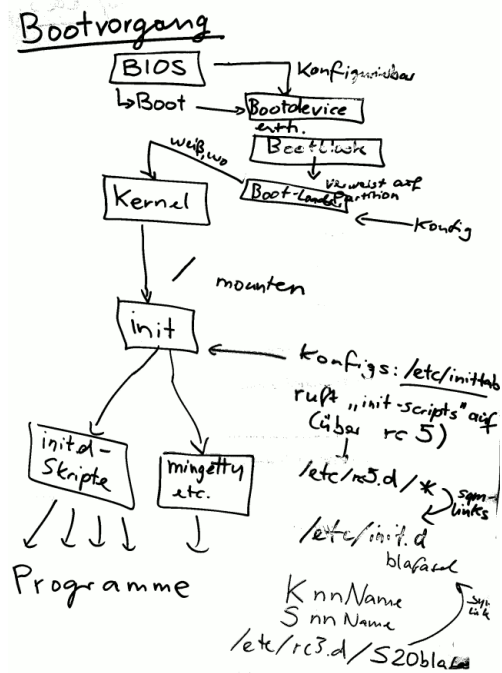 Bootvorgang
BIOS
Konfigurierbar
↳Boot
Bootdevice
enth.
Bootblock
weiß, wo
verweist auf
Partition
Boot-Loader
Kernel
Konfig
/ mounten
init
Konfigs: /etc/inittab
ruft „init-scripts" auf
(über rc 5)
init.d-
Skripte
mingetty
etc.
/etc/rc5.d/*
sym-
links
/etc/init.d
blafasel
Programme
K nn Name
S nn Name
sym
link
/etc/rc3.d/S20bla